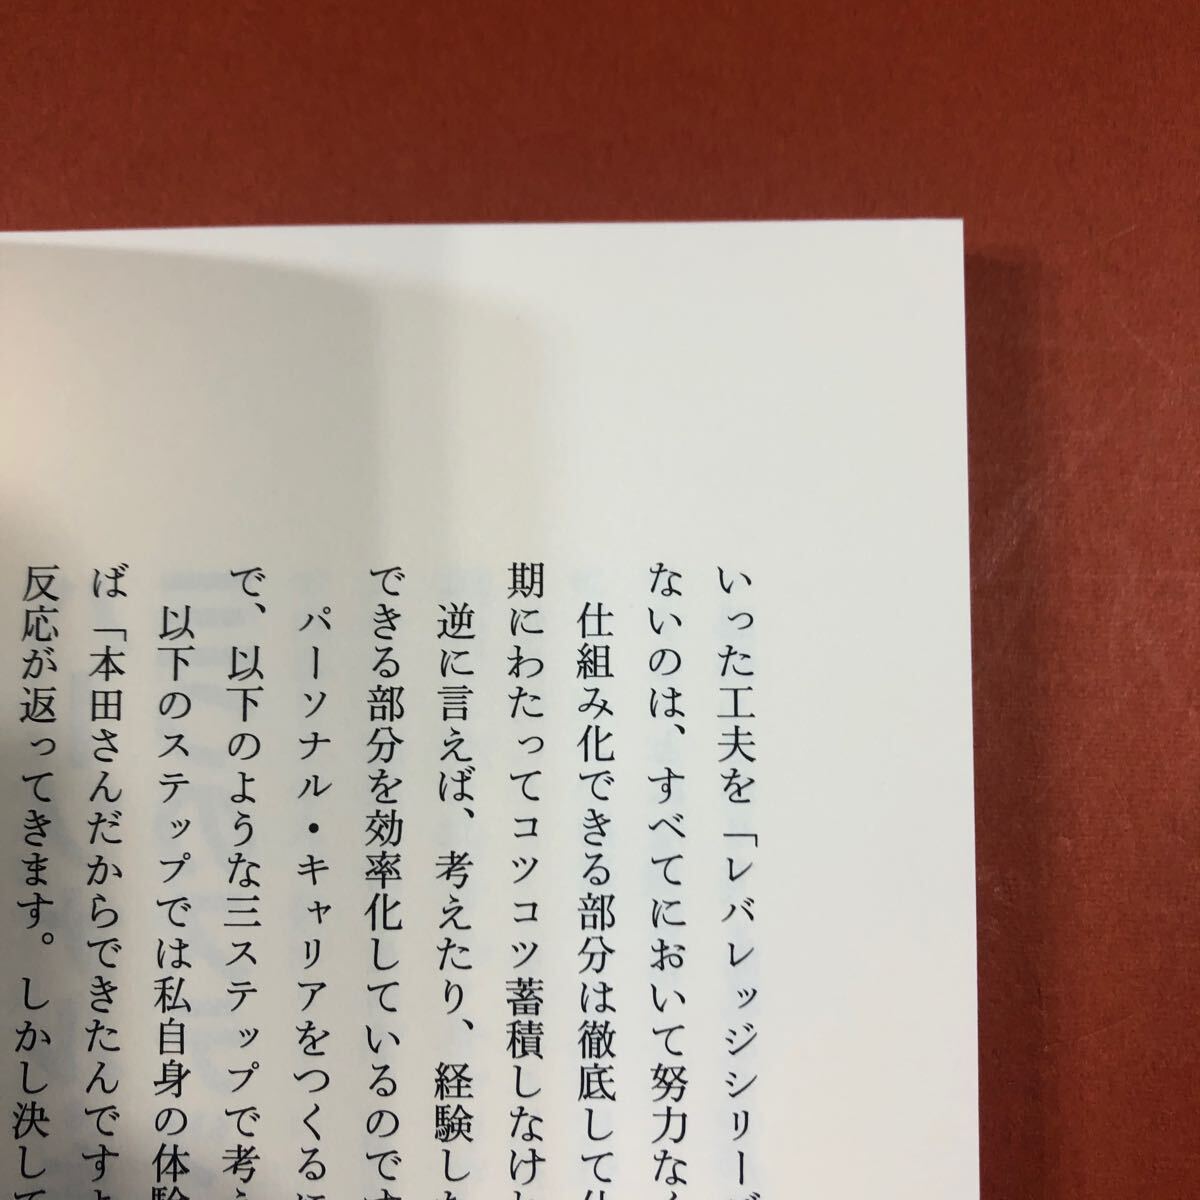 いった工夫を「レバレッジシリーズ
ないのは、すべてにおいて努力なく
仕組み化できる部分は徹底して仕
期にわたってコツコツ蓄積しなけれ
逆に言えば、考えたり、経験した
できる部分を効率化しているのです
パーソナル・キャリアをつくるに
で、以下のような三ステップで考え
以下のステップでは私自身の体験
ば「本田さんだからできたんですよ
反応が返ってきます。しかし決して